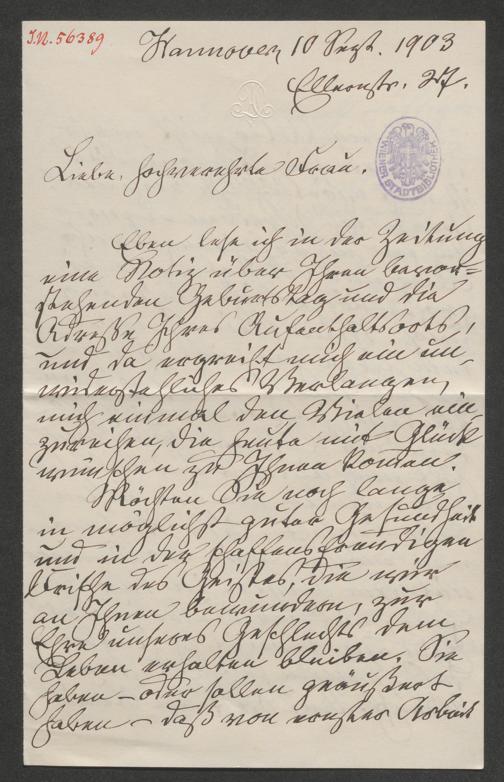 I.N. 56389
Hannover, 10 Sept. 1903
Ellernstr. 27.
WIENER STADTBIBLIOTHEK
Liebe, hochverehrte Frau.
Eben lese ich in der Zeitung
eine Notiz über Ihren bevor=
stehenden Geburtstag und die
Adresse Ihres Aufenthaltsorts,
und da ergreift mich ein un-
widerstehliches Verlangen,
mich einmal den Vielen ein-
zureihen, die heute mit Glück
wünschen zu Ihnen kommen.
Möchten Sie noch lange
in möglichst guter Gesundheit
und in der schaffensfreudigen
Frische des Geistes, die wir
an Ihnen bewundern, zur
Ehre unseres Geschlechts dem
Leben erhalten bleiben. Sie
haben – oder sollen geäußert
haben – daß von ernster Arbeit